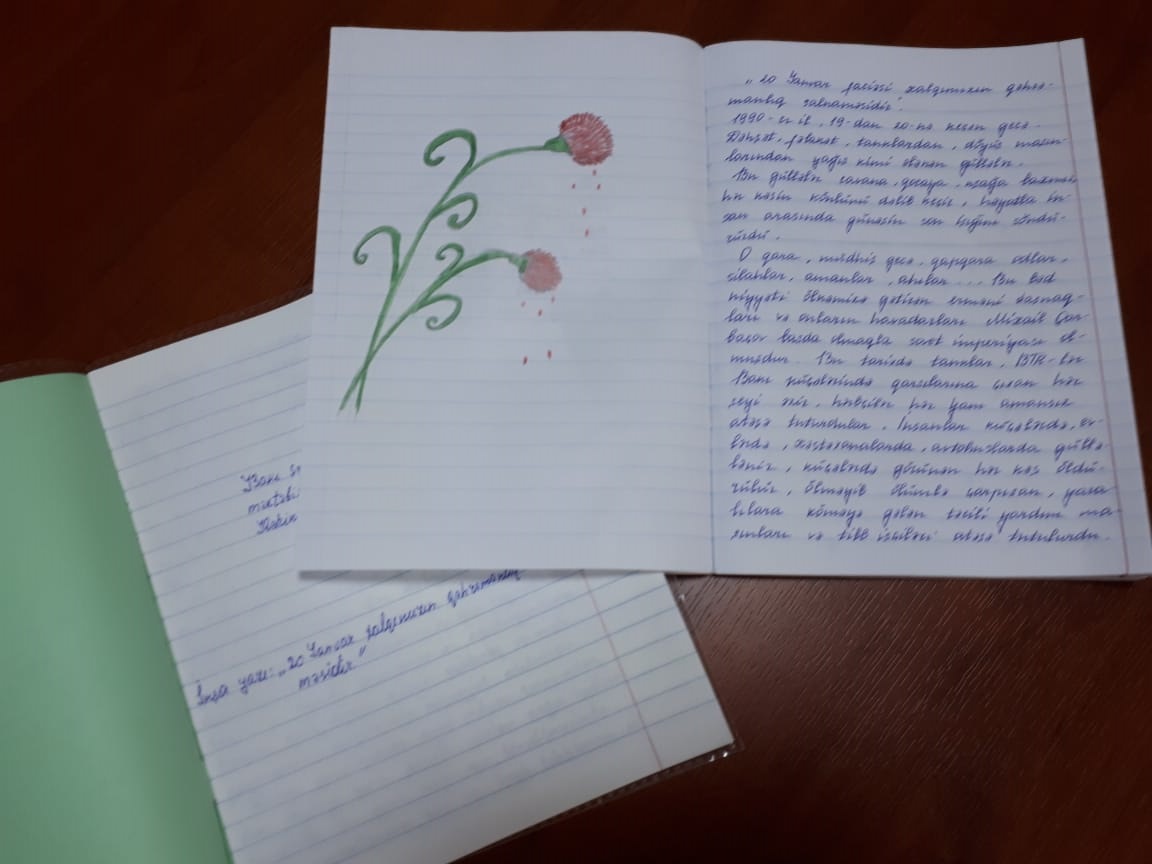 „20 Yanvar faciəsi xalqımızın qəhrə-
manlıq salnaməsidir".
1990-cı il, 19-dan 20-nə keçən gecə.
Dəhşət, fəlakət, tanklardan, döyüş maşın-
larından yağış kimi ələnən güllələr.
Bu güllələr cavana, qocaya, uşağa baxmadı
hər kəsin könlünü dəlib keçir, həyatla in-
san arasında günəşin son işığını söndü-
rürdü.
O qara, müdhiş gecə, qapqara odlar,
silahlar, amanlar, ahılar... Bu bəd
niyyəti ölkəmizə gətirən erməni daşnaq-
ları və onların havadarları Mixail Qor-
baçov başda olmaqla sovet imperiyası ol-
muşdur. Bu tarixdə tanklar, BTR-lər
Bakı küçələrində qarşılarına çıxan hər
şeyi əzir, hərbçilər hər yanı amansız
atəşə tuturdular. İnsanlar küçələrdə, ev-
lərdə, xəstəxanalarda, avtobuslarda güllə-
lənir, küçələrdə görünən hər kəs öldü-
rülür, ölməyib ölümlə çarpışan, yara
lılara köməyə gələn təcili yardım ma-
şınları və tibb işçiləri atəşə tutulurdu.
Bakı
məktəbi
İnşa yazı: „20 Yanvar xalqımızın qəhrəmanlıq
məsidir"